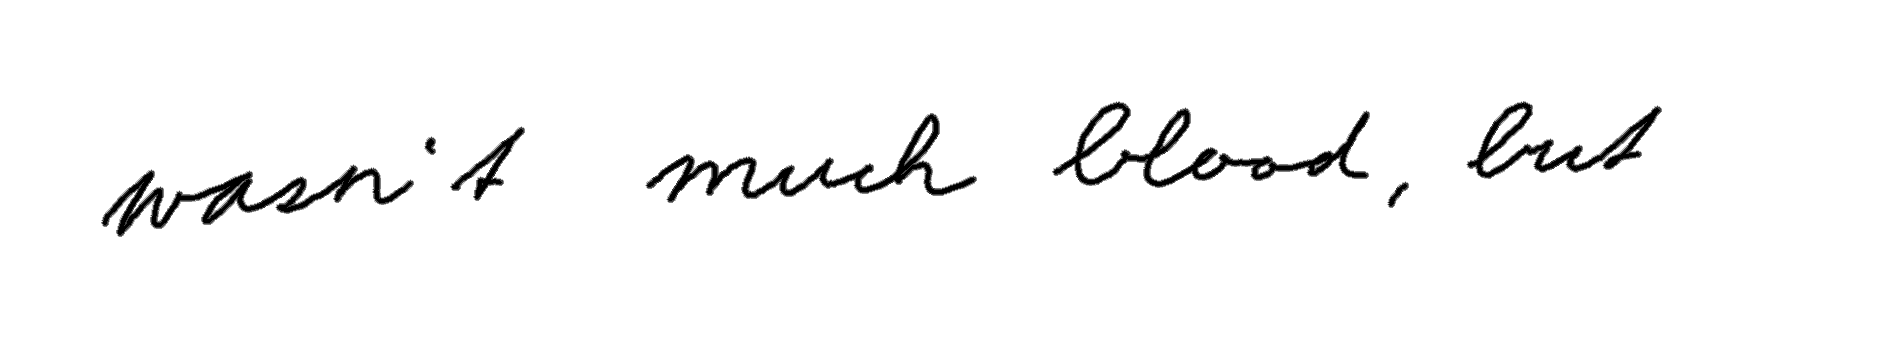 wasn't much blood, but